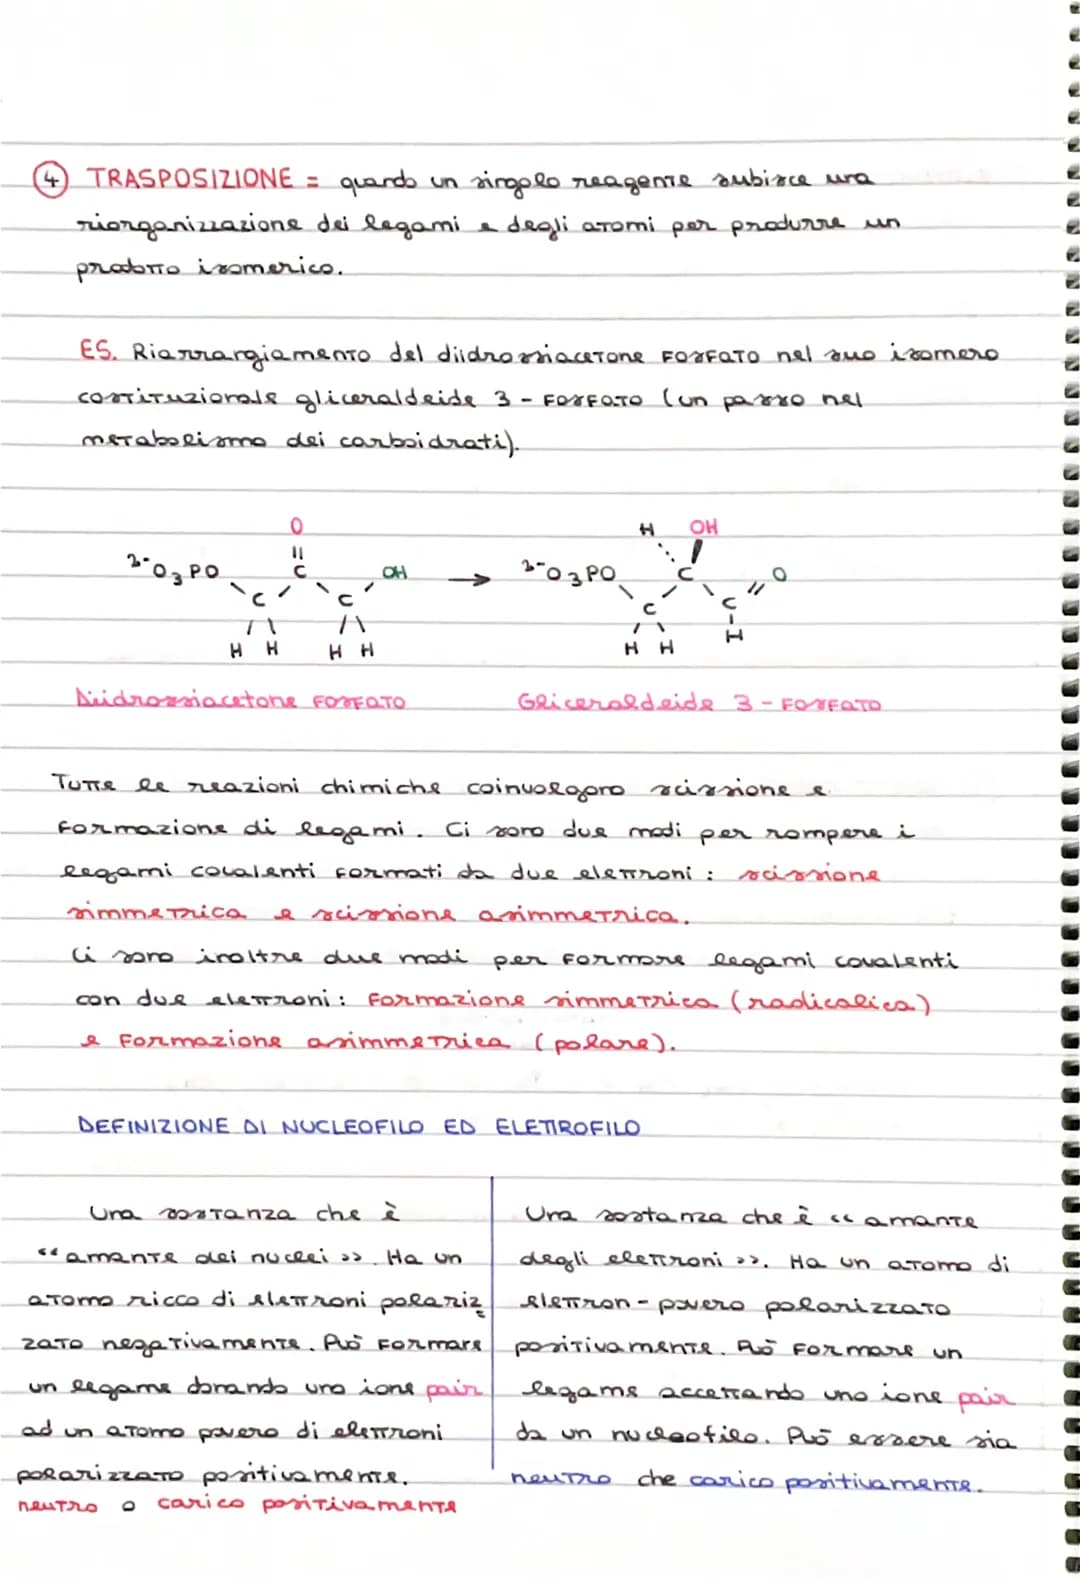 ④ TRASPOSIZIONE = quando un singolo reagente subisce una
riorganizzazione dei legami e degli atomi per produrre un
prodotto isomerico.
ES. Riarrangiamento del diidrossiacetone FOSFATO nel suo isomero
costituzionale gliceraldeide 3 - FOSFATO (un passo nel
metabolismo dei carboidrati).
O H OH
2-O3PO C OH → 2-O3PO C O
C C C C
H H H H H H H
Diidrossiacetone FOSFATO Gliceraldeide 3 - FOSFATO
Tutte le reazioni chimiche coinvolgono scissione e
formazione di legami. Ci sono due modi per rompere i
legami covalenti formati da due elettroni : scissione
simmetrica e scissione asimmetrica.
Ci sono inoltre due modi per formare legami covalenti
con due elettroni : formazione simmetrica (radicalica)
e formazione asimmetrica (polare).
DEFINIZIONE DI NUCLEOFILO ED ELETTROFILO
Una sostanza che è
<< amante dei nuclei >>. Ha un
atomo ricco di elettroni polariz
zato negativamente. Può formare
un legame donando uno ione pair
ad un atomo povero di elettroni
polarizzato positivamente.
neutro o carico positivamente
Una sostanza che è << amante
degli elettroni >>. Ha un atomo di
elettron - povero polarizzato
positivamente. Può formare un
legame accettando uno ione pair
da un nucleofilo. Può essere sia
neutro che carico positivamente.